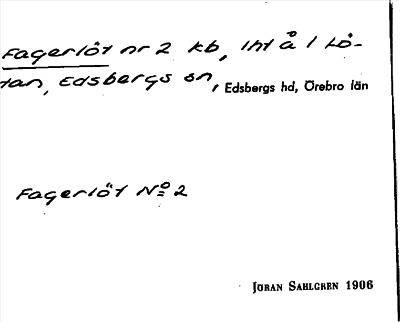 Fagerlöt nr 2 kb, Int å 1 Lö-
tan, Edsbergs sn, Edsbergs hd, Örebro län
Fagerlöt No 2
JÖRAN SAHLGREN 1906